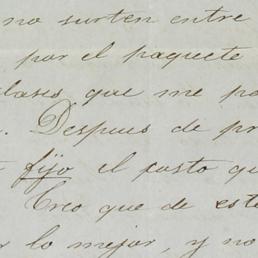 no surten entre
por el paquete
clases que me pa
. Despues de pr
fijo el costo qu
Creo que de este
lo mejor, y no